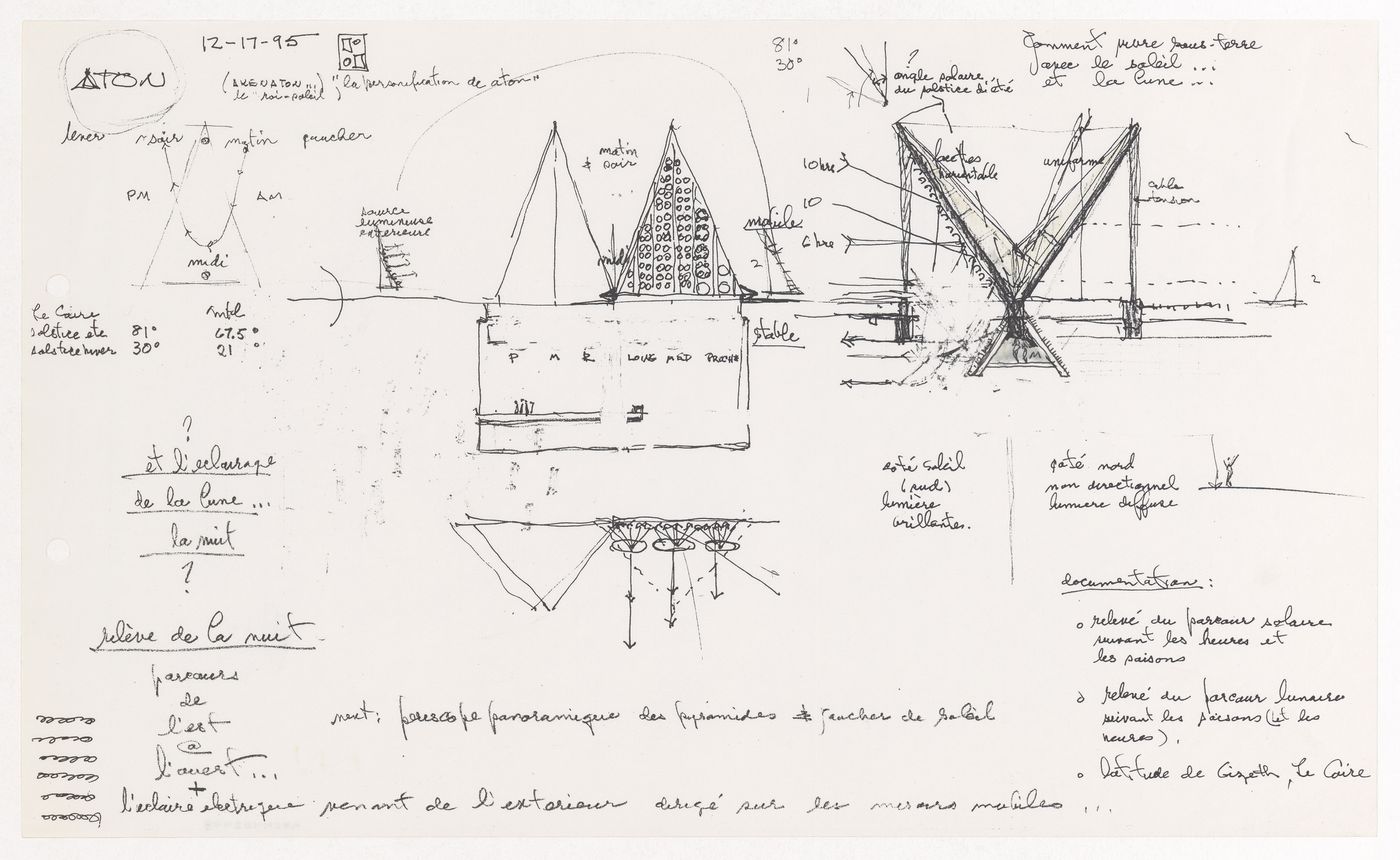 12-17-95
ATON
(AKENATON...) "la personification de aton"
le "roi-soleil"
lever soir matin coucher
PM AM
midi
Le Caire mtl
solstice été 81° 67.5°
solstice hiver 30° 21°
source
lumineuse
extérieure
matin
& soir
midi
mobile
2
stable
P M R LONG MED PROCHE
81°
30°
?
angle solaire
du solstice d'été
Comment vivre sous-terre
avec le soleil...
et la lune...
10 hrs
10
6 hre
facettes
orientable
uniforme
cable
tension
2
M
?
et l'eclairage
de la lune...
la nuit
?
relève de la nuit
parcours
de
l'est
@
l'ouest...
+
l'eclaire électrique venant de l'exterieur dirigé sur les miroirs mobiles ...
nuit: periscope panoramique des pyramides & coucher de soleil
côté soleil
(sud)
lumière
brillantes.
côté nord
non directionnel
lumiere diffuse
documentation:
o relevé du parcour solaire
suivant les heures et
les saisons
o relevé du parcour lunaire
suivant les saisons (et les
heures).
o latitude de Gizeth, Le Caire